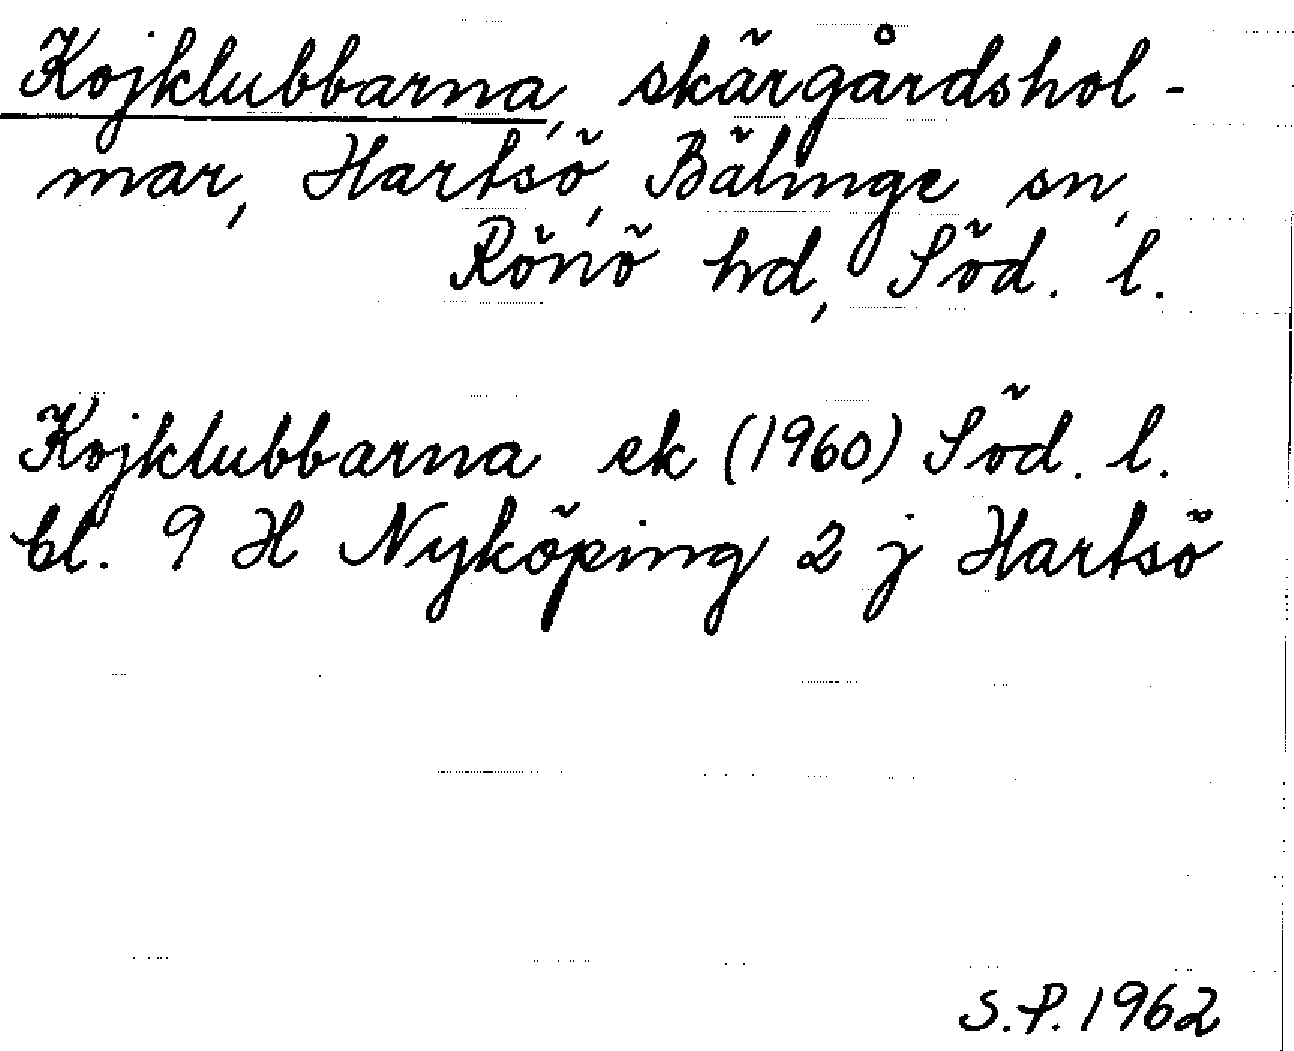 Kojklubbarna, skärgårdshol-
mar, Hartsö, Bälinge sn,
Rönö hd, Söd. l.
Kojklubbarna ek (1960) Söd. l.
bl. 9 H Nyköping 2 j Hartsö
S.P. 1962